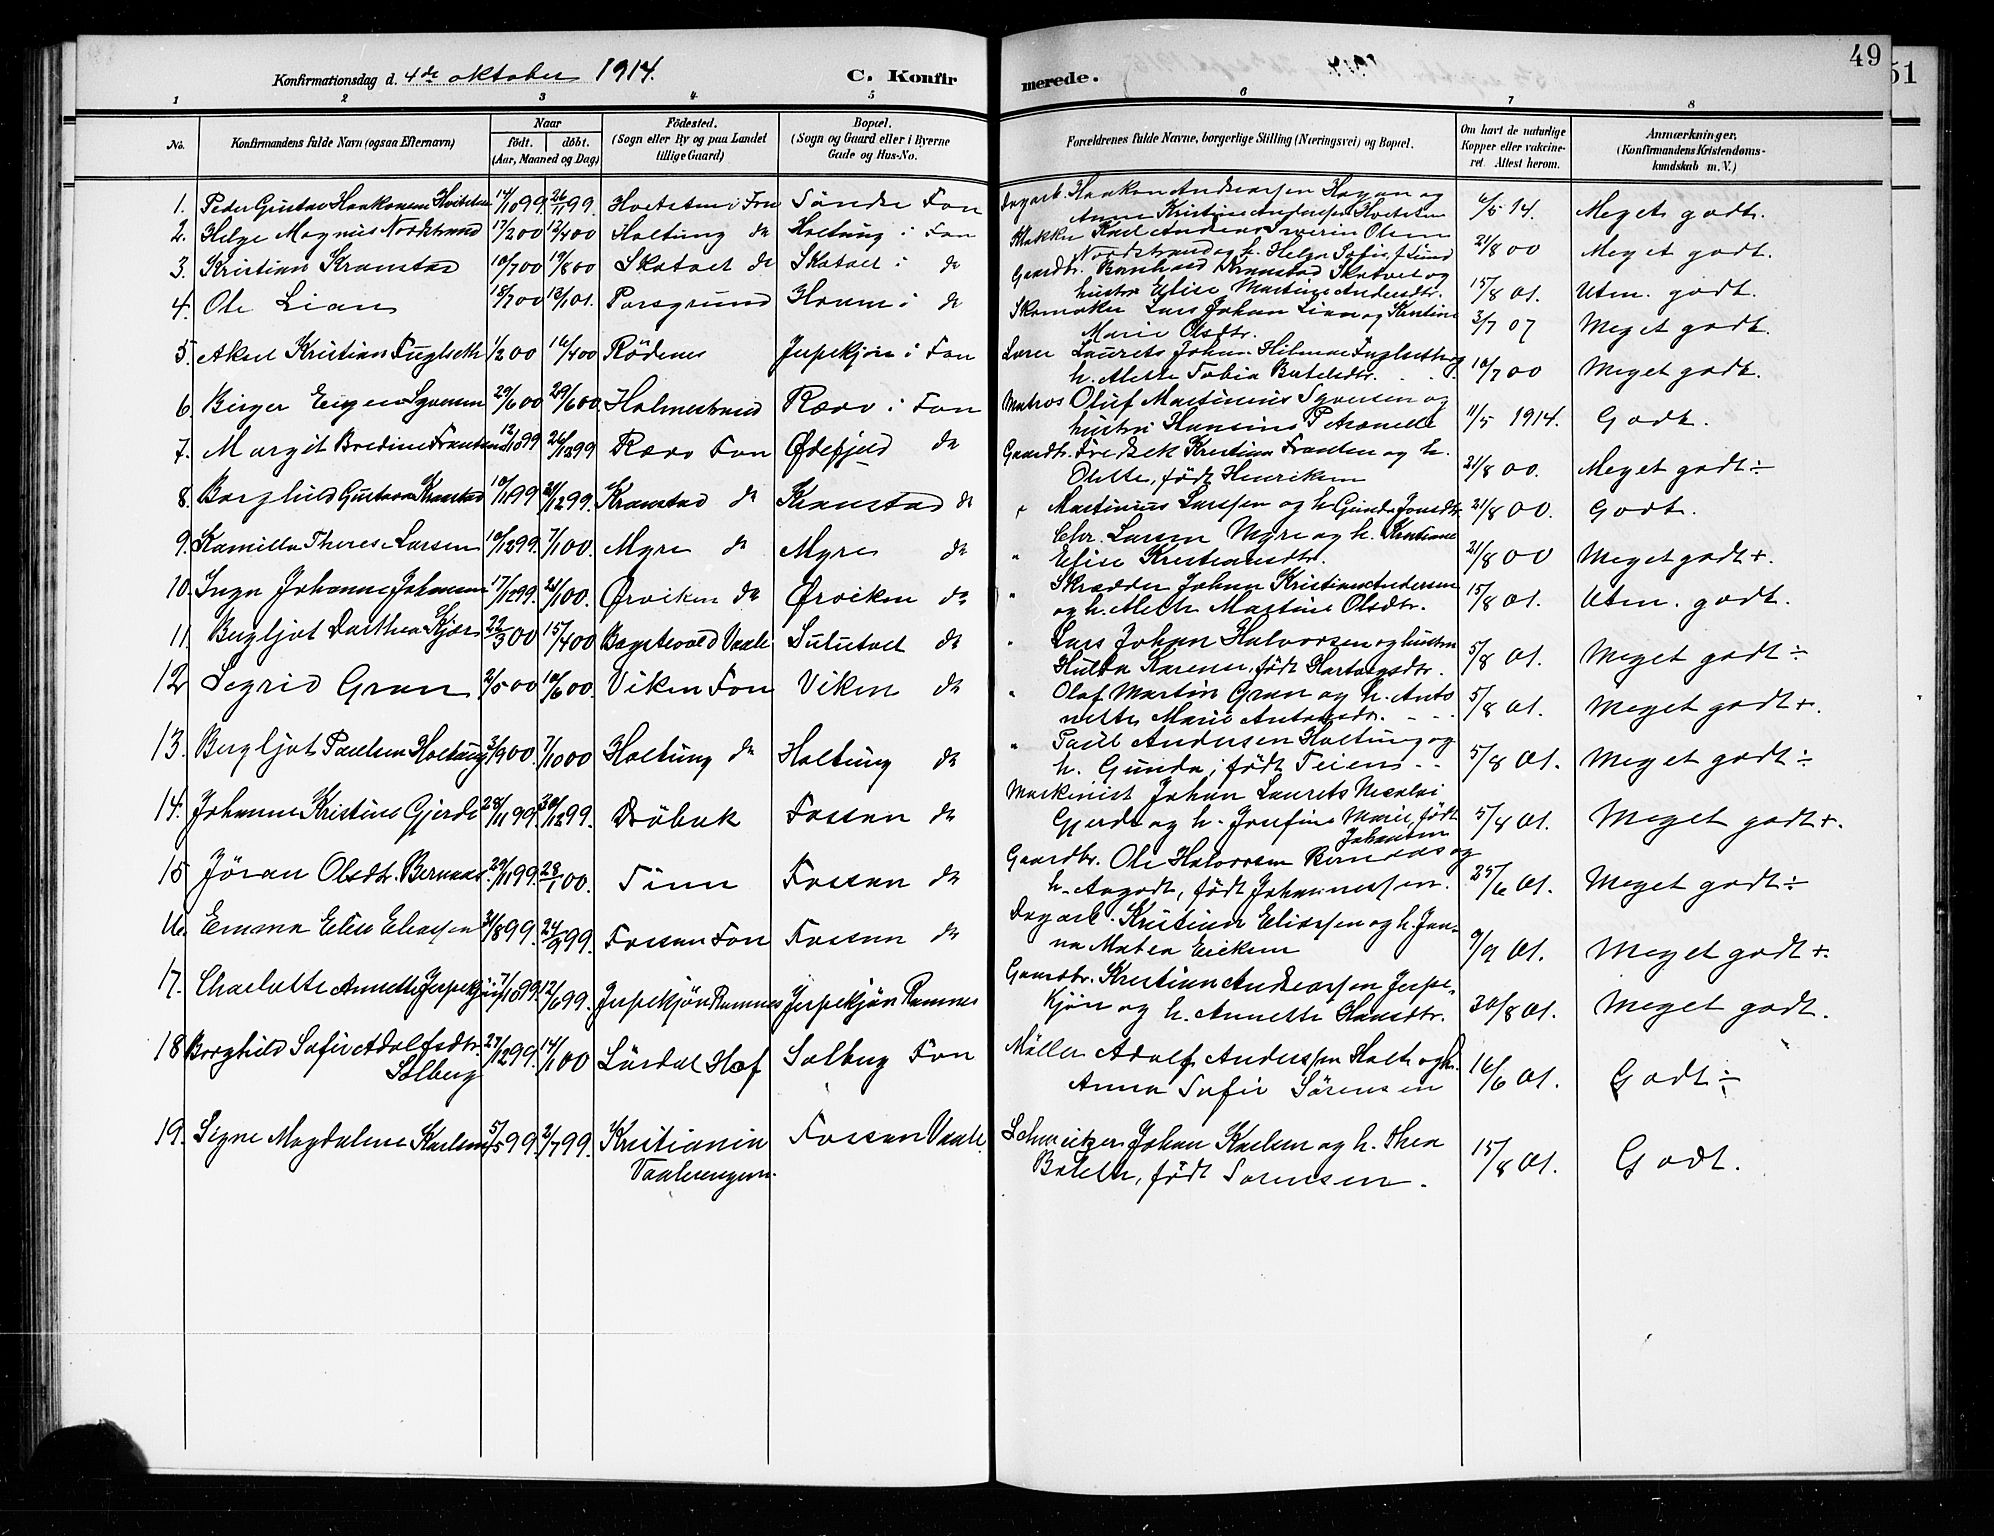 49
51
Konfirmationsdag d. 4de oktober 1914. C. Konfirmerede.
1 2 3 4 5 6 7 8
No. Konfirmandens fulde Navn (ogsaa Efternavn) Naar født. døbt. (Aar, Maaned og Dag) Fødested. (Sogn eller By og paa Landet tillige Gaard) Bopæl. (Sogn og Gaard eller i Byerne Gade og Hus-No.
Forældrenes fulde Navne, borgerlige Stilling (Næringsvei) og Bopæl. Om havt de naturlige Kopper eller vakcineret. Attest herom. Anmærkninger. (Konfirmandens Kristendomskundskab m. V.)
1. Peder Gustav Haakonsen Hvitsten 14/10 99. 26/11 99. Hvitsten i Fon Søndre Fon Dagarb. Haakon Andreassen Hagan og
Anne Kristine Andersen Hvitsten 6/5 14. Meget godt.
2. Helge Magnus Nordstrand 17/2 00 12/4 00 Holtung do Holtung i Fon Karl Andreas Severin Olsen
Nordstrand og h. Helga Sofie f. Lund 21/8 00 Meget godt.
3. Kristian Kranstad 10/7 00 19/8 00 Skatvet do Skatvet i do Gaardbr. Bernhard Kranstad Skatvet og
hustru Elise Martine Andersdtr. 15/8 01. Utm. godt.
4. Ole Lian 18/7 00 13/1 01. Porsgrund Horum i do Skomaker Lars Johan Lian og Kristine
Marie Olsdtr. 3/7 07 Meget godt.
5. Aksel Kristian Fuglseth 1/2 00 16/4 00 Rødenes Jerpekjøn i Fon Lærer Laurits Johan Hilmar Fuglseth og
h. Alette Tobia Batelsdtr. 10/7 00 Meget godt.
6. Birger Eugen Syversen 29/6 00 29/6 00. Holmestrand Ræv i Fon Matros Oluf Martinius Syversen og
hustru Hansine Petronelle 11/5 1914. Godt.
7. Margit Bredine Frantsen 12/10 99 26/12 99 Ræv Fon Ødefjeld do Gaardbr. Fredrik Kristian Frantsen og h.
Olette, født Henriksen 21/8 00. Meget godt ÷
8. Borghild Gustava Kranstad 10/11 99 26/12 99. Kranstad do Kranstad do " Martinius Larssen og h. Gunda Jonsdtr. 21/8 00. Godt.
9. Kamilla Therese Larsen 16/12 99. 7/1 00. Myre do Myre do " Chr. Larsen Myre og h. Kristiane
Elise Kristiansdtr. 21/8 00 Meget godt +
10. Inga Johanne Johansen 17/12 99. 21/1 00. Ørviken do Ørviken do " Skrædder Johan Kristian Andersen
og h. Aleth. Martine Olsdtr. 15/8 01. Utm. godt.
11. Bergljot Dorthea Kjær 22/3 00 15/4 00 Bagstevold Vaale Sulutvet do " Lars Johan Halvorsen og hustru
Hulda Karense, født Hartvigsdtr. 5/8 01. Meget godt ÷
12 Sigrid Gran 2/5 00 10/6 00. Viken Fon Viken do " Olaf Martin Gran og h. Anto
nette Marie Antonsdtr. 5/8 01. Meget godt +.
13. Bergljot Paulsen Holtung 3/9 00. 7/10 00 Holtung do Holtung do " Paul Andersen Holtung og
h. Gunda, født Teien 5/8 01. Meget godt ÷
14. Johanne Kristine Gjerde 28/11 99 30/12 99. Drøbak Fossan do Maskinist Johan Laurits Nicolai
Gjerde og h. Josefine Marie, født
Johansen 5/8 01. Meget godt +.
15 Jøran Olsdtr. Bernaas. 29/11 99. 28/1 00. Tinn Fossan do Gaardbr. Ole Halvorsen Bernaas og
h. Aagodt, født Johannessen. 25/6 01. Meget godt ÷
16. Emma Elise Eliassen 31/8 99. 24/9 99 Fossan Fon Fossan do Dagarb. Kristian Eliassen og h. Jen-
na Matea Eriksen 9/9 01. Meget godt +.
17. Charlotte Annette Jerpekjøn 7/10 99. 12/11 99. Jerpekjøn Ramnes Jerpekjøn Ramnes Gaardbr. Kristian Andreassen Jerpe-
kjøn og h. Annette Hansdtr. 30/8 01. Meget godt.
18 Borghild Sofie Adolfsdtr.
Solberg 27/12 99. 14/1 00 Lørdal Hof Solberg Fon Møller Adolf Anderssen Holt og h.
Anna Sofie Sørensen 16/6 01. Godt ÷
19. Signe Magdalene Karlsen 5/5 99 2/7 99. Kristiania
Vaalerengen. Fossan Vaale. Schweitzer Johan Karlsen og h. Thea
Batelle, født Sørensen. 15/8 01. Godt.